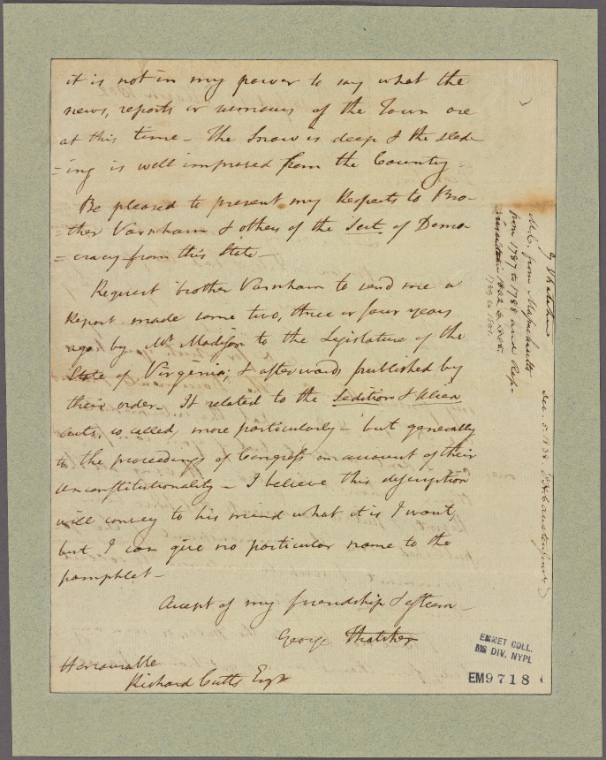 it is not in my power to say what the
news, reports or rumours of the Town are
at this time – The Snow is deep & the sled-
=ing is well improved from the Country –
Be pleased to present my Respects to Bro-
=ther Varnham & others of the Sect of Demo-
=cracy from this State –
Request brother Varnham to send me a
Report made some two, three or four years
ago by Mr. Madison to the Legislature of the
State of Virginia; & afterwards published by
their order. It related to the Sedition & Alien
acts, so called, more particularly – but generally
to the proceedings of Congress on account of their
unconstitutionality – I believe this description
will convey to his mind what it is I want,
but I can give no particular name to the
pamphlet –
Accept of my friendship & esteem –
George Thatcher
Honourable
Richard Cutts Esqr
M.C. from Massachusetts
from 1787 to 1788 and Rep-
1789 to 1801.
EMMET COLL.
MS DIV. NYPL
EM9718